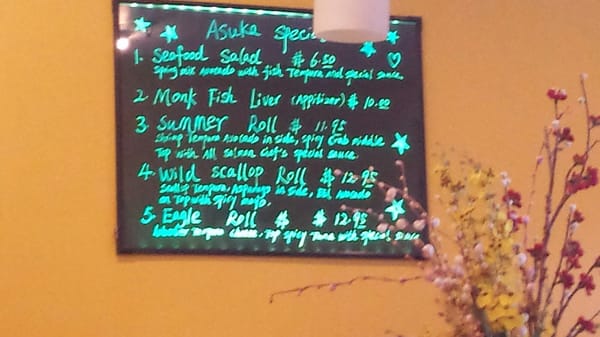 Asuka Speci
1. Seafood Salad $6.50
Spring mix Avocado with fish Tempura and special sauce
2. Monk Fish Liver (Appitizer) $10.00
3. Summer Roll $11.95
Shrimp Tempura Avocado in side, spicy Crab middle
Top with All Salmon Chef's special sauce.
4. Wild Scallop Roll $12.95
Scallop Tempura, Asparago in side, Eel Avocado
on Top with spicy mayo.
5. Eagle Roll $ $12.95
Lobster Tempura cheese, Top spicy Tuna with special sauce